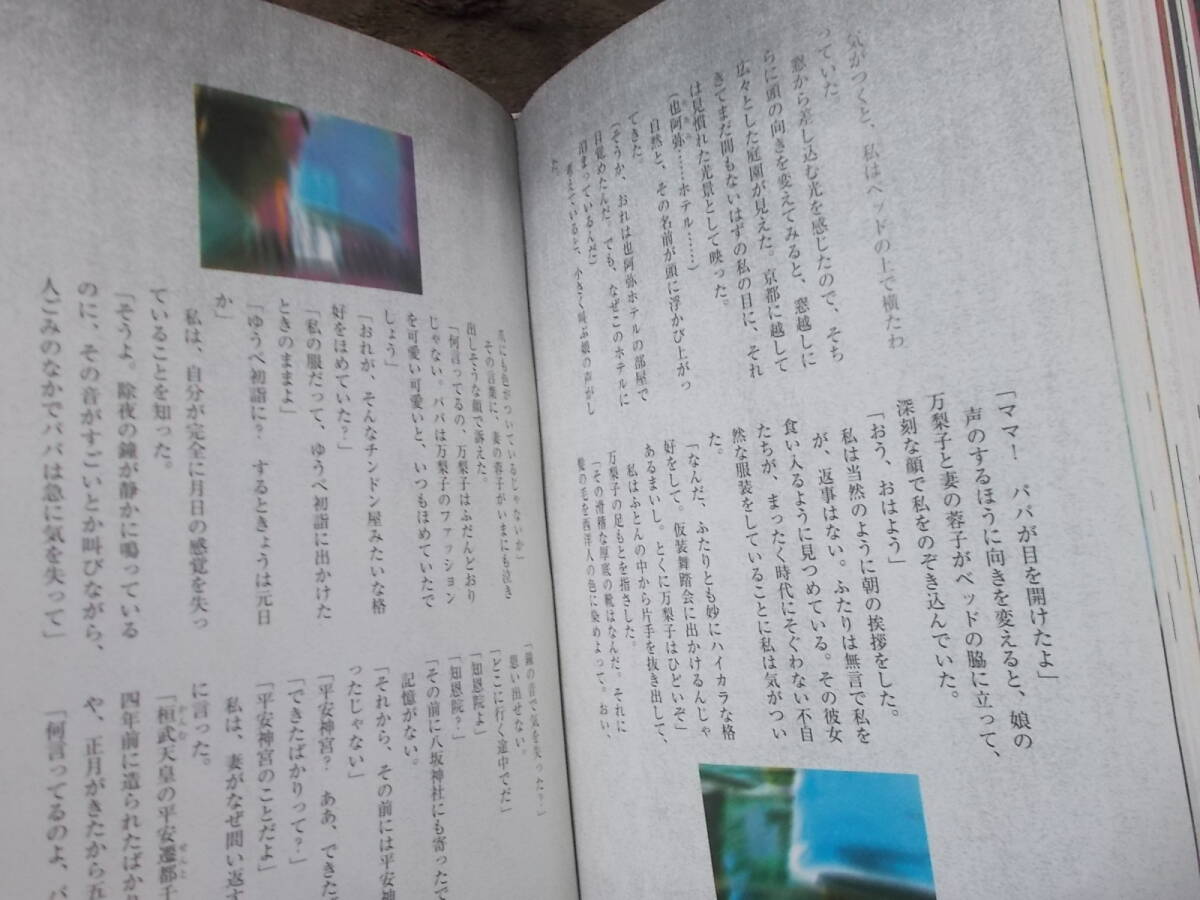 気がつくと、私はベッドの上で横たわ
っていた。
窓から差し込む光を感じたので、そち
らに頭の向きを変えてみると、窓越しに
広々とした庭園が見えた。京都に越して
きてまだ間もないはずの私の目に、それ
は見慣れた光景として映った。
(也阿弥……ホテル……)
自然と、その名前が頭に浮かび上がっ
てきた。
(そうか、おれは也阿弥ホテルの部屋で
目覚めたんだ。でも、なぜこのホテルに
泊まっているんだ)
考えていると、小さく叫ぶ娘の声がし
た。
「ママ! パパが目を開けたよ」
声のするほうに向きを変えると、娘の
万梨子と妻の蓉子がベッドの脇に立って、
深刻な顔で私をのぞき込んでいた。
「おう、おはよう」
私は当然のように朝の挨拶をした。
が、返事はない。ふたりは無言で私を
食い入るように見つめている。その彼女
たちが、まったく時代にそぐわない不自
然な服装をしていることに私は気がつい
た。
「なんだ、ふたりとも妙にハイカラな格
好をして。仮装舞踏会に出かけるんじゃ
あるまいし。とくに万梨子はひどいぞ」
私はふとんの中から片手を抜き出して、
万梨子の足もとを指さした。
「その滑稽な厚底の靴はなんだ。それに
髪の毛を西洋人の色に染めよって。おい、
爪にも色がついているじゃないか」
その言葉に、妻の蓉子がいまにも泣き
出しそうな顔で訴えた。
「何言ってるの、万梨子はふだんどおり
じゃない。パパは万梨子のファッション
を可愛い可愛いと、いつもほめていたで
しょう」
「おれが、そんなチンドン屋みたいな格
好をほめていた?」
「私の服だって、ゆうべ初詣に出かけた
ときのままよ」
「ゆうべ初詣に? するときょうは元日
か」
私は、自分が完全に月日の感覚を失っ
ていることを知った。
「そうよ。除夜の鐘が静かに鳴っている
のに、その音がすごいとか叫びながら、
人ごみのなかでパパは急に気を失って」
「鐘の音で気を失った?」
思い出せない。
「どこに行く途中でだ」
「知恩院よ」
「知恩院?」
「その前に八坂神社にも寄ったで
記憶がない。
「それから、その前には平安神
ったじゃない」
「平安神宮? ああ、できた
「できたばかりって?」
「平安神宮のことだよ」
私は、妻がなぜ問い返す
に言った。
「桓武天皇の平安遷都千
四年前に造られたばか
や、正月がきたから五
「何言ってるのよ、パ